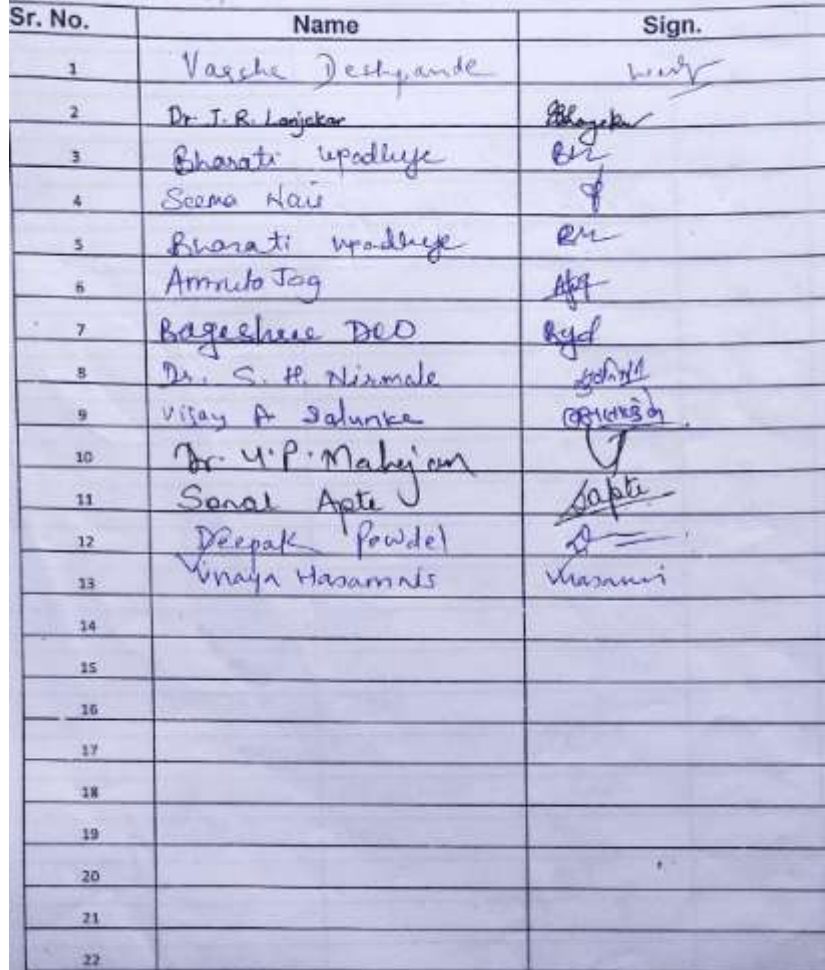 Sr. No. Name Sign.
1 Varsha Deshpande
2 Dr. J. R. Lanjekar
3 Bharati Upadhye
4 Seema Nair
5 Bharati Upadhye
6 Amruta Jog
7 Bageshree DEO
8 Dr. S. H. Nirmale
9 Vijay A Salunke
10 Dr. Y. P. Mahajan
11 Sonal Apte Sapte
12 Deepak Powdel
13 Vinaya Hasamnis
14
15
16
17
18
19
20
21
22